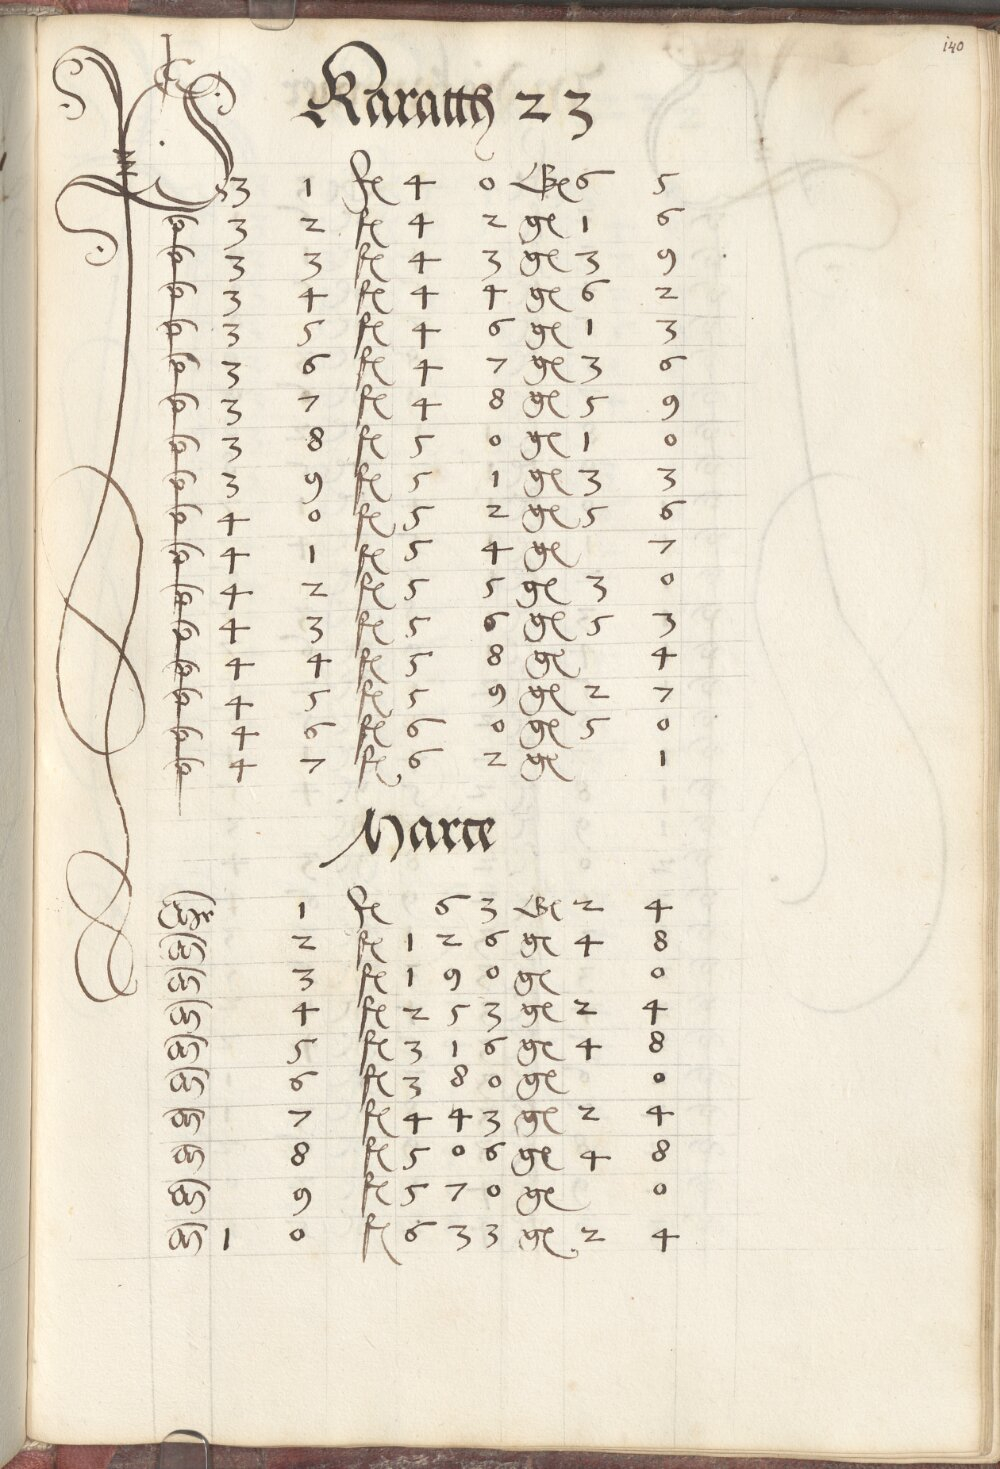 140
Karatth 23
33 1 fl 40 Gr 6 5
q 3 2 fl 4 2 gr 1 6
q 3 3 fl 4 3 gr 3 9
q 3 4 fl 4 4 gr 6 2
q 3 5 fl 4 6 gr 1 3
q 3 6 fl 4 7 gr 3 6
q 3 7 fl 4 8 gr 5 9
q 3 8 fl 5 0 gr 1 0
q 3 9 fl 5 1 gr 3 3
q 4 0 fl 5 2 gr 5 6
q 4 1 fl 5 4 gr 7
q 4 2 fl 5 5 gr 3 0
q 4 3 fl 5 6 gr 5 3
q 4 4 fl 5 8 gr 4
q 4 5 fl 5 9 gr 2 7
q 4 6 fl 6 0 gr 5 0
q 4 7 fl 6 2 gr 1
Marce
1 fl 6 3 Gr 2 4
2 fl 1 2 6 gr 4 8
3 fl 1 9 0 gr 0
4 fl 2 5 3 gr 2 4
5 fl 3 1 6 gr 4 8
6 fl 3 8 0 gr 0
7 fl 4 4 3 gr 2 4
8 fl 5 0 6 gr 4 8
9 fl 5 7 0 gr 0
1 0 fl 6 3 3 gr 2 4